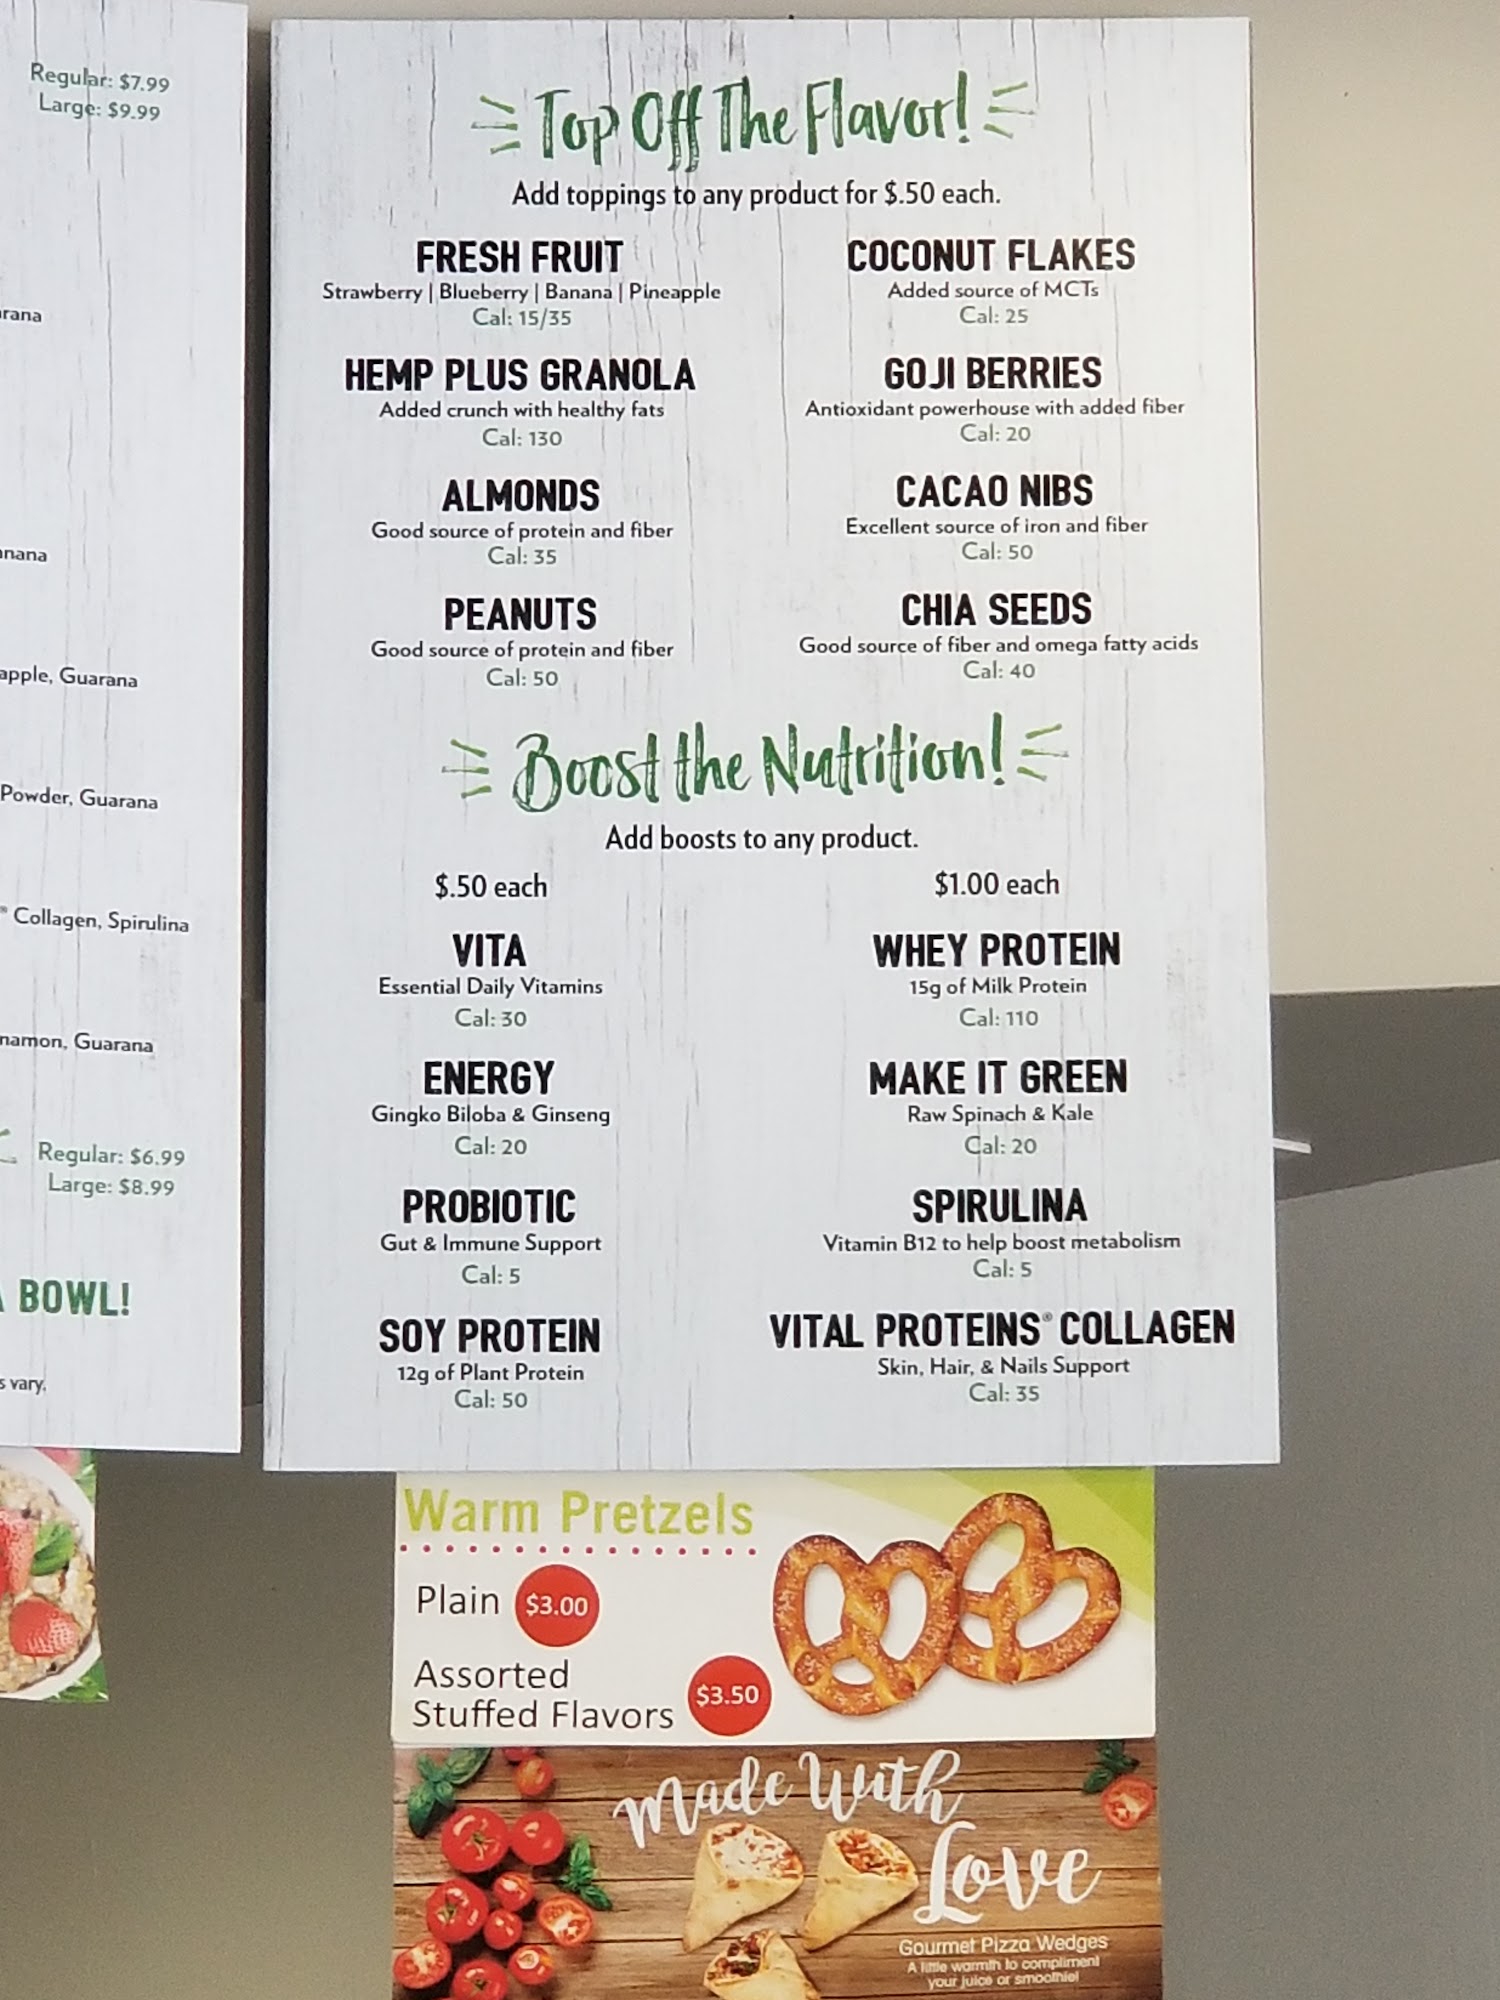 Regular: $7.99
Large: $9.99
Guarana
apple, Guarana
Powder, Guarana
® Collagen, Spirulina
Guarana
Regular: $6.99
Large: $8.99
BOWL!
vary.
Top Off The Flavor!
Add toppings to any product for $.50 each.
FRESH FRUIT
Strawberry | Blueberry | Banana | Pineapple
Cal: 15/35
HEMP PLUS GRANOLA
Added crunch with healthy fats
Cal: 130
ALMONDS
Good source of protein and fiber
Cal: 35
PEANUTS
Good source of protein and fiber
Cal: 50
COCONUT FLAKES
Added source of MCTs
Cal: 25
GOJI BERRIES
Antioxidant powerhouse with added fiber
Cal: 20
CACAO NIBS
Excellent source of iron and fiber
Cal: 50
CHIA SEEDS
Good source of fiber and omega fatty acids
Cal: 40
Boost the Nutrition!
Add boosts to any product.
$.50 each
VITA
Essential Daily Vitamins
Cal: 30
ENERGY
Gingko Biloba & Ginseng
Cal: 20
PROBIOTIC
Gut & Immune Support
Cal: 5
SOY PROTEIN
12g of Plant Protein
Cal: 50
$1.00 each
WHEY PROTEIN
15g of Milk Protein
Cal: 110
MAKE IT GREEN
Raw Spinach & Kale
Cal: 20
SPIRULINA
Vitamin B12 to help boost metabolism
Cal: 5
VITAL PROTEINS® COLLAGEN
Skin, Hair, & Nails Support
Cal: 35
Warm Pretzels
Plain $3.00
Assorted
Stuffed Flavors $3.50
Made With
Love
Gourmet Pizza Wedges
A little warmth to compliment
your juice or smoothie!